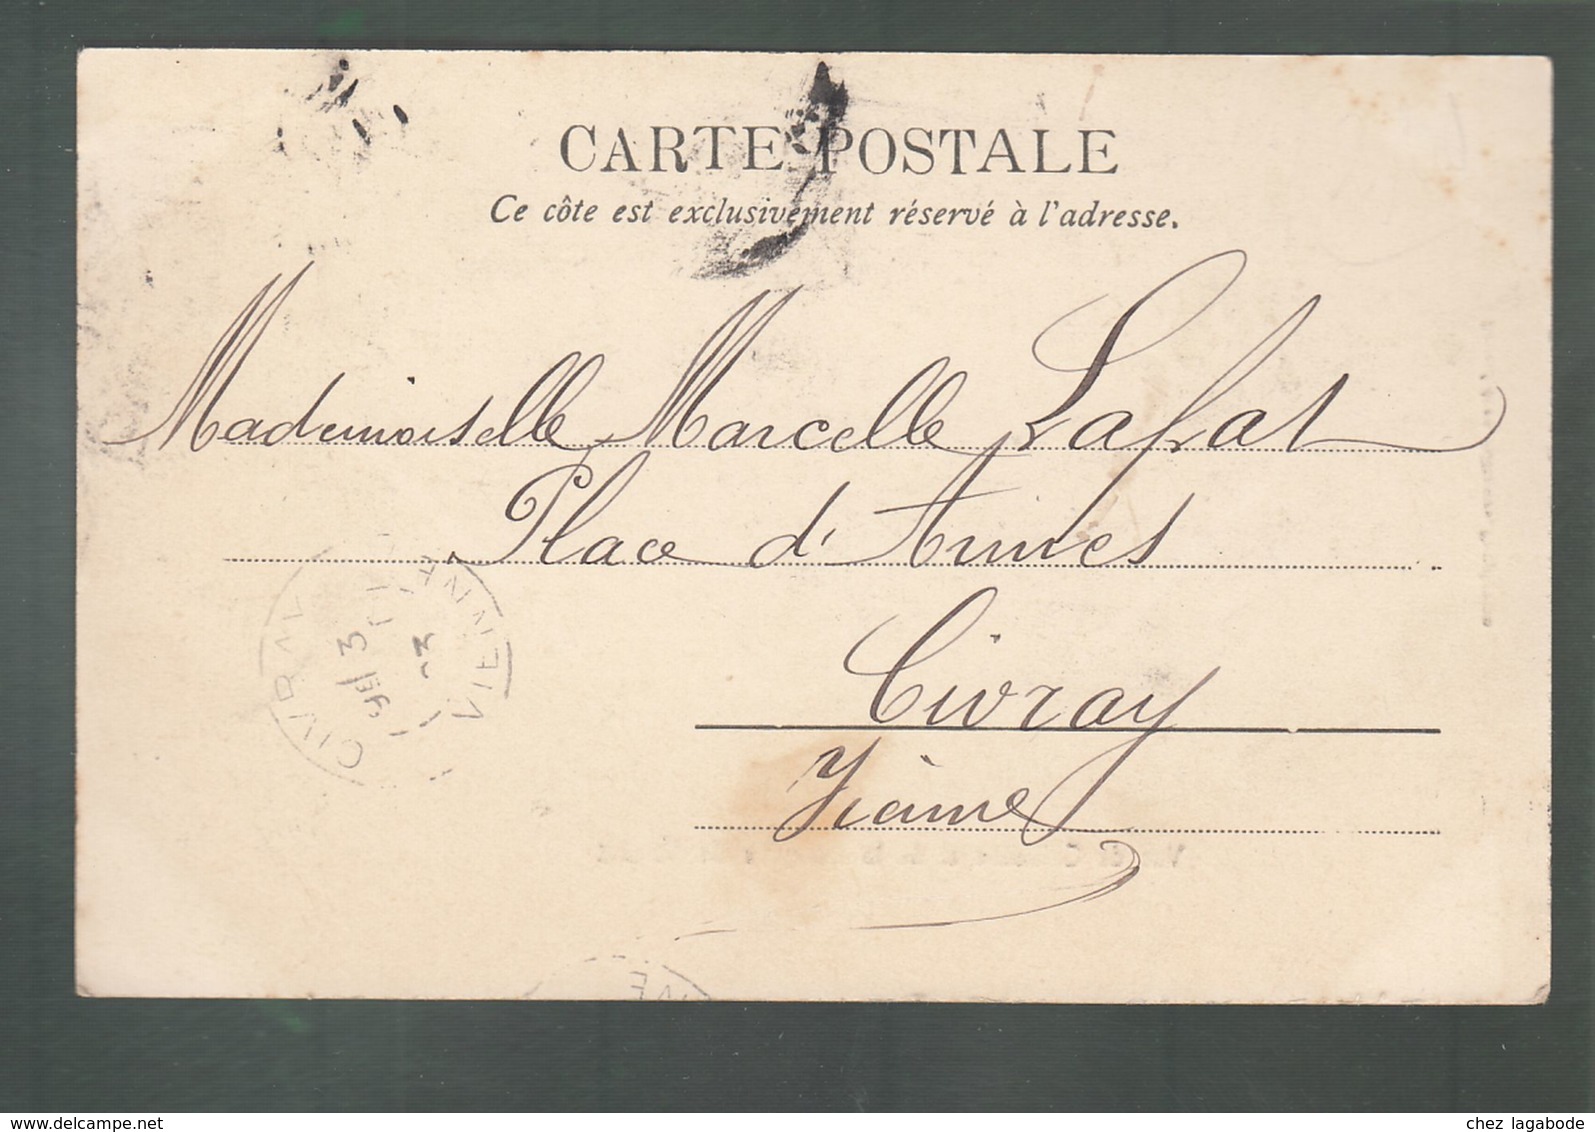 CARTE POSTALE
Ce côte est exclusivement réservé à l'adresse.
Mademoiselle Marcelle Lafat
Place d'Armes
Civray
Vienne
CIVRAY
VIENNE
delcampe.net
chez lagabode